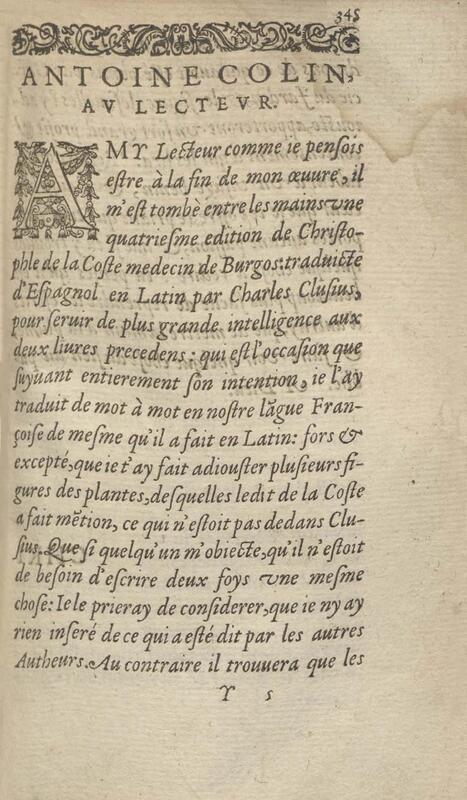 345
ANTOINE COLIN.
AV LECTEVR.
AMY Lecteur comme ie pensois
estre à la fin de mon œuure, il
m'est tombè entre les mains vne
quatriesme edition de Christo-
phle de la Coste medecin de Burgos: traduicte
d'Espagnol en Latin par Charles Clusius,
pour seruir de plus grande intelligence aux
deux liures precedens: qui est l'occasion que
suyuant entierement son intention, ie l'ay
traduit de mot à mot en nostre lãgue Fran-
çoise de mesme qu'il a fait en Latin: fors &
excepté, que ie t'ay fait adiouster plusieurs fi-
gures des plantes, desquelles ledit de la Coste
a fait mẽtion, ce qui n'estoit pas dedans Clu-
sius. Que si quelqu'un m'obiecte, qu'il n'estoit
de besoin d'escrire deux foys vne mesme
chose: Ie le prieray de considerer, que ie ny ay
rien inseré de ce qui a esté dit par les autres
Autheurs. Au contraire il trouuera que les
Y 5